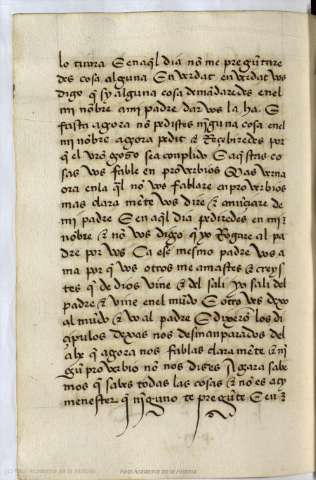 lo tirara E en aql dia nō me pregūtare
des cosa alguna En verdat en verdat vos
digo q sy alguna cosa demādaredes en el
mi nōbre a mi padre dar vos la ha. E
fasta agora nō pedistes njguna cosa en el
mi nōbre agora pedit & Recebiredes por
q el vr̄o gozo sea conplido E aqstas co
sas vos fable en proverbios Mas verna
ora en la ql nō vos fablare en proverbios
mas clara mēte vos dire & anūçiare de
mi padre En aql dia pediredes en mi
nōbre & nō vos digo q yo Rogare al pa
dre por vos Ca ese mesmo padre vos a
ma por q vos otros me amastes & creys
tes q de dios vine & del sali yo sali del
padre & vine en el mūdo E otra vez dexo
al mūdo & vo al padre E dixerō los di
çipulos
q agora nos fablas clara mēte & nj
gū proverbio nō nos dizes Agora sabe
mos q sabes todas las cosas & nō es a ty
menester q njguno te pregūte En